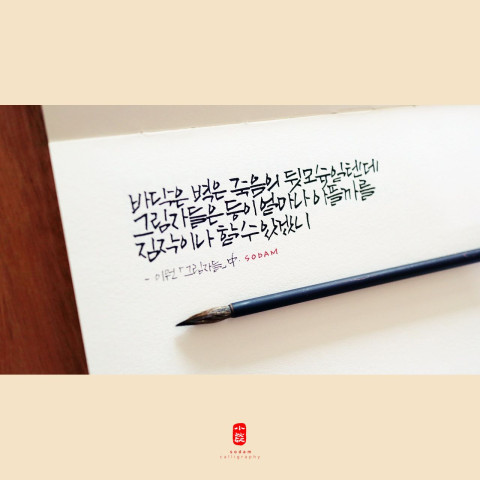 바닥은 벽은 죽음의 뒷모습일텐데
그림자들은 등이 얼마나 아플까를
짐작이나 할 수 있겠니
- 이원 「그림자들」 中. SODAM
sodam
calligraphy